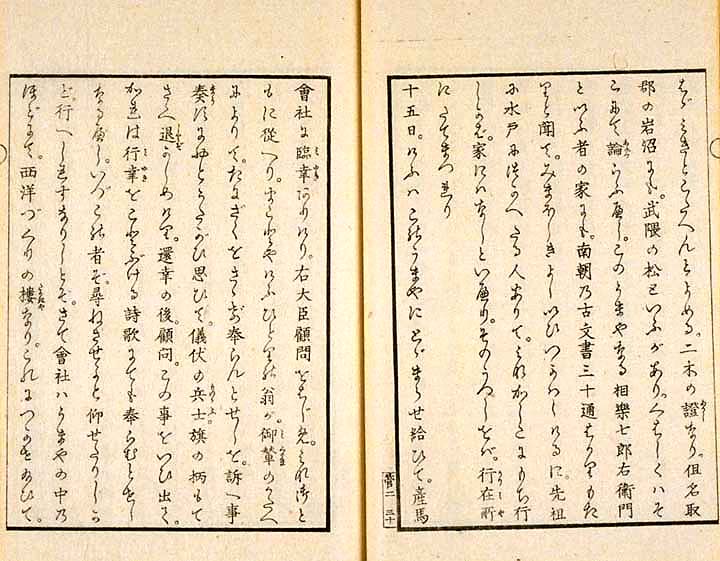 きとこたへんとよめる。二木の證なり。但名取
郡の岩沼にも。武隈の松といふがあり。くはしくハそ
こにて論らふべし。このうまやなる相樂七郎右衛門
といふ者の家にも。南朝乃古文書三十通はかりもた
りと聞て。みまほしきよしいひつかはしけるに。先祖
に水戸につかへたる人ありて。もち行
家にハなしといへり。そのうつしをバ。行在所
にたてまつれり
十五日。けふハこのうまやにとゞまらせ給ひて。産馬
菅二 三十
會社に臨幸ありけり。右大臣顧問をはじめ。と
もに從へり。けふひとりの翁が。御輦のかたへ
により來て。たにざくをさゝげ奉らんとせしを。訴へ事
奏すにやとうたがひ思ひて。儀仗の兵士旗の柄もて
さへ退かしめけり。還幸の後。顧問。この事をいひ出て。
かれは行幸をことぶける詩歌にても奉らむとせし
なるべし。いづこの者ぞ。尋ねさせよと仰せたりしか
ど。行へしれずなりしとぞ。さて會社ハうまやの中乃
ほどにて。西洋づくりの樓なり。これにつゞきあひて。